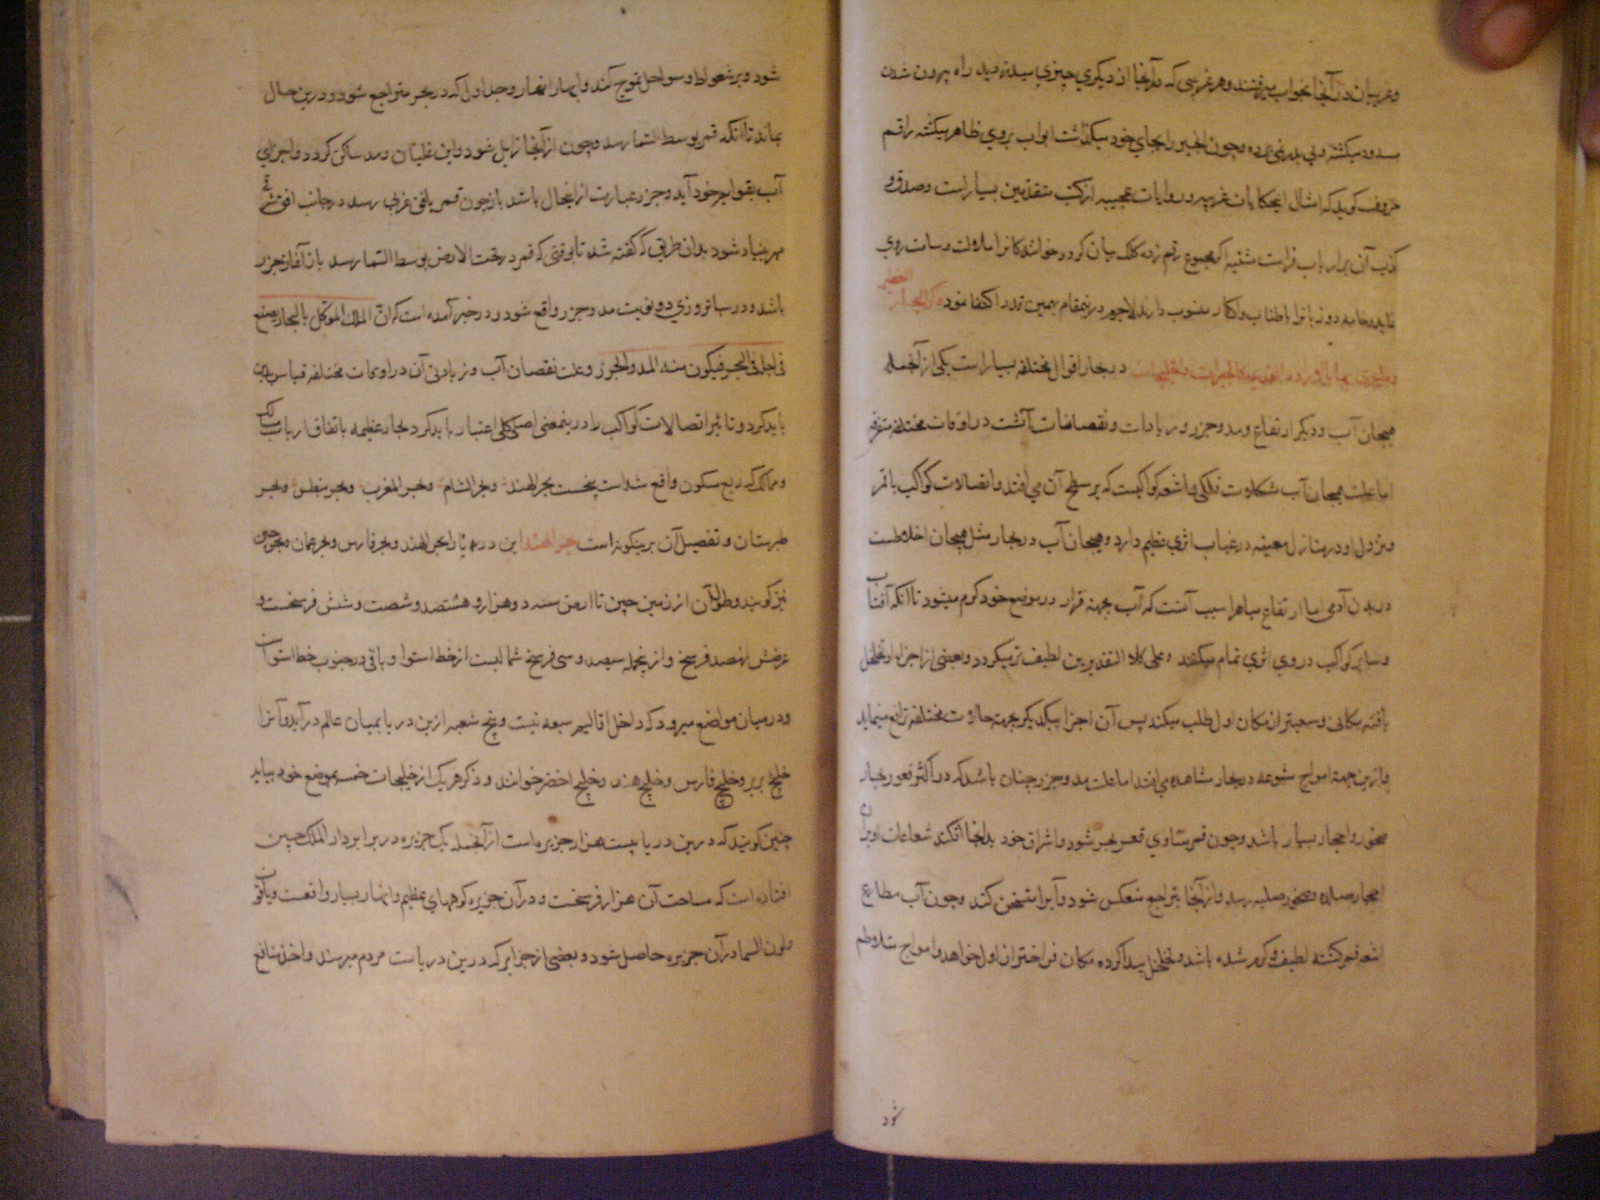 و غریبان در آنجا بخواب میرفتند و هر غریبی که در آنجا از دیگری چیزی میدزدید راه بیرون شدن
مسدود میکشت و پی بدر نمی برد و چون آنچیز را بجای خود میکذاشت ابواب بروی ظاهر میکشت راقم
حروف کوید که امثال اینحکایات غریبه و روایات عجیبه در کتب متقدمین بسیار است و صدق و
کذب آن بر ارباب فراست مشتبه اکر مجموع رقم زده کلک بیان کردد خوانندکانرا ملالت و سامت روی
نماید و خامه دو زبانرا باطناب و اکثار منسوب دارند لاجرم درینمقام بهمین قدر اکتفا نمود ذکر البحار العظیمه
در بحار اقوال مختلفه بسیار است یکی از آنجمله
هیجان آب و دیکر ارتفاع و مد و جزر و زیادات و نقصانات آنست در اوقات مختلفه متفرقه
اما علت هیجان آب شکلات فلکی و اشعه کواکبست که بر سطح آن می افتد و اتصالات کواکب با قمر
و نزول او در منازل معینه درین باب اثری عظیم دارد و هیجان آب در بحار مثل هیجان اخلاطست
در بدن آدمی اما ارتفاع میاه را سبب آنست که آب بجهته قرار در موضع خود کرم میشود تا آنکه آفتاب
و سایر کواکب در وی اثری تمام میکنند و علی کلا التقدیرین لطیف تر میکردد و بعضی از اجزاء او تخلخل
یافته مکانی وسیعتر از مکان اول طلب میکند پس آن اجزا بیکدیکر بجهت حالات مختلفه تدافع مینماید
و ازین جهت امواج متنوعه در بحار مشاهده می افتد اما علت مد و جزر چنان باشد که در اکثر قعور بحار
صخور و احجار بسیار باشد و چون قمر مساوی قعر بحر شود و اشراق خود بدانجا افکند شعاعات او بران
احجار صلبه و صخور صلبه رسد و از آنجا بتراجع منعکس شود و آبرا متسخن کند و چون آب مطارح
اشعه قمر کشته لطیف و کرم شده باشد و تخلخل پیدا کرده مکان فراختر از اول خواهد و امواج متلاطم
شود
شود و بر شطوط و سواحل تموج کند و ابحار انهار و جداول که در بحر متراجع شود و درین حال
بماند تا آنکه قمر بوسط السما رسد و چون از آنجا زایل شود و این غلیان و مد ساکن کردد و اجزای
آب بقوام خود آید و جزر عبارت ازینحال باشد باز چون قمر بافق غربی رسد در جانب افق شرقی
مد بنیاد شود بدان طریق که کفته شد تا بوقتی که قمر در تحت الارض بوسط السما رسد باز آغاز جزر
باشد و در شبانروزی دو نوبت مد و جزر واقع شود و در خبر آمده است که ان الملک الموکل بالبحار یضع
رجله فی البحر فیکون منه المد و الجزر و علت نقصان آب و زیادتی آن در اوقات مختلفه قیاس برین
باید کرد و تاثیر اتصالات کواکب را درینمعنی اصلی کلی اعتبار باید کرد بحار عظیمه باتفاق ارباب مسالک
و ممالک که در ربع مسکون واقع شده است پنجست بحر الهند و بحر الشام و بحر المغرب و بحر بنطس و بحر
طبرستان و تفصیل آن برینکونه است بحر الهند این دریا را بحر الهند و بحر فارس و بحر عمان و بحر چین
نیز کویند و طول آن از زمین چین تا ارض دو هزار و هشتصد و شصت و شش فرسخست و
عرضش نهصد فرسخ و از ینجمله سیصد و سی فرسخ شمالیست از خط استوا و باقی در جنوب خط استوا
و در میان مواضع میرود که داخل اقالیم سبعه نیست و پنج شعبه ازین دریا بمیان عالم درآید و آنرا
خلیج بربر و خلیج فارس و خلیج هند و خلیج اخضر خوانند و ذکر هر یک از خلیجات خمسه بموضع خود بیاید
چنین کویند که درین دریا بیست هزار جزیره است از آنجمله یک جزیره در برابر دار الملک چین
افتاده است که مساحت آن هزار فرسخست و در آن جزیره کوههای عظیم و انهار بسیار واقعست و یاقوت
ملون السما در آن جزیره حاصل شود و بعضی از جزایر که درین دریاست مردم میرسند و اخذ منافع